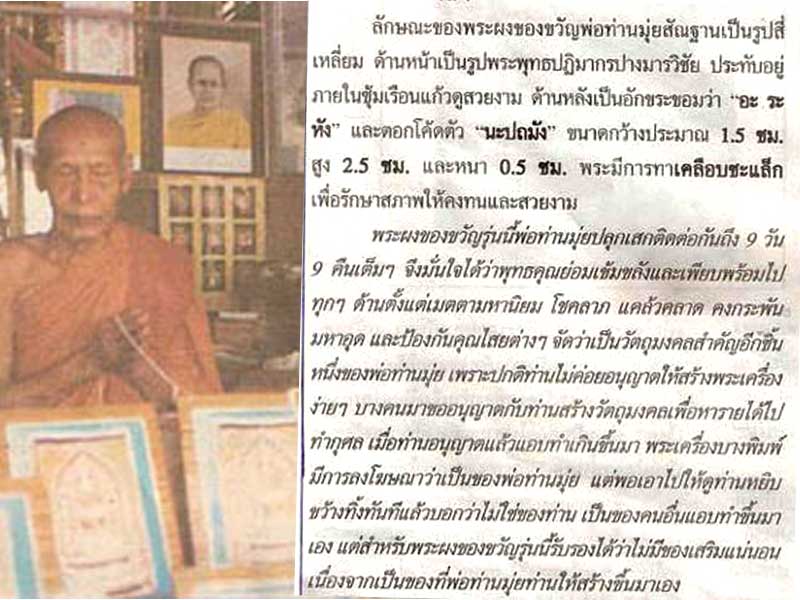 ลักษณะของพระผงของขวัญพ่อท่านมุ่ยสัณฐานเป็นรูปสี่
เหลี่ยม ด้านหน้าเป็นรูปพระพุทธปฏิมากรปางมารวิชัย ประทับอยู่
ภายในซุ้มเรือนแก้วดูสวยงาม ด้านหลังเป็นอักขระขอมว่า “อะ ระ
หัง” และตอกโค้ดตัว “นะปถมัง” ขนาดกว้างประมาณ 1.5 ซม.
สูง 2.5 ซม. และหนา 0.5 ซม. พระมีการทาเคลือบชะแล็ก
เพื่อรักษาสภาพให้คงทนและสวยงาม
พระผงของขวัญรุ่นนี้พ่อท่านมุ่ยปลุกเสกติดต่อกันถึง 9 วัน
9 คืนเต็มๆ จึงมั่นใจได้ว่าพุทธคุณย่อมเข้มขลังและเพียบพร้อมไป
ทุกๆ ด้านตั้งแต่เมตตามหานิยม โชคลาภ แคล้วคลาด คงกระพัน
มหาอุด และป้องกันคุณไสยต่างๆ จัดว่าเป็นวัตถุมงคลสำคัญอีกชิ้น
หนึ่งของพ่อท่านมุ่ย เพราะปกติท่านไม่ค่อยอนุญาตให้สร้างพระเครื่อง
ง่ายๆ บางคนมาขออนุญาตกับท่านสร้างวัตถุมงคลเพื่อหารายได้ไป
ทำกุศล เมื่อท่านอนุญาตแล้วแอบทำเกินขึ้นมา พระเครื่องบางพิมพ์
มีการลงโฆษณาว่าเป็นของพ่อท่านมุ่ย แต่พอเอาไปให้ดูท่านหยิบ
ขว้างทิ้งทันทีแล้วบอกว่าไม่ใช่ของท่าน เป็นของคนอื่นแอบทำขึ้นมา
เอง แต่สำหรับพระผงของขวัญรุ่นนี้รับรองได้ว่าไม่มีของเสริมแน่นอน
เนื่องจากเป็นของที่พ่อท่านมุ่ยท่านให้สร้างขึ้นมาเอง